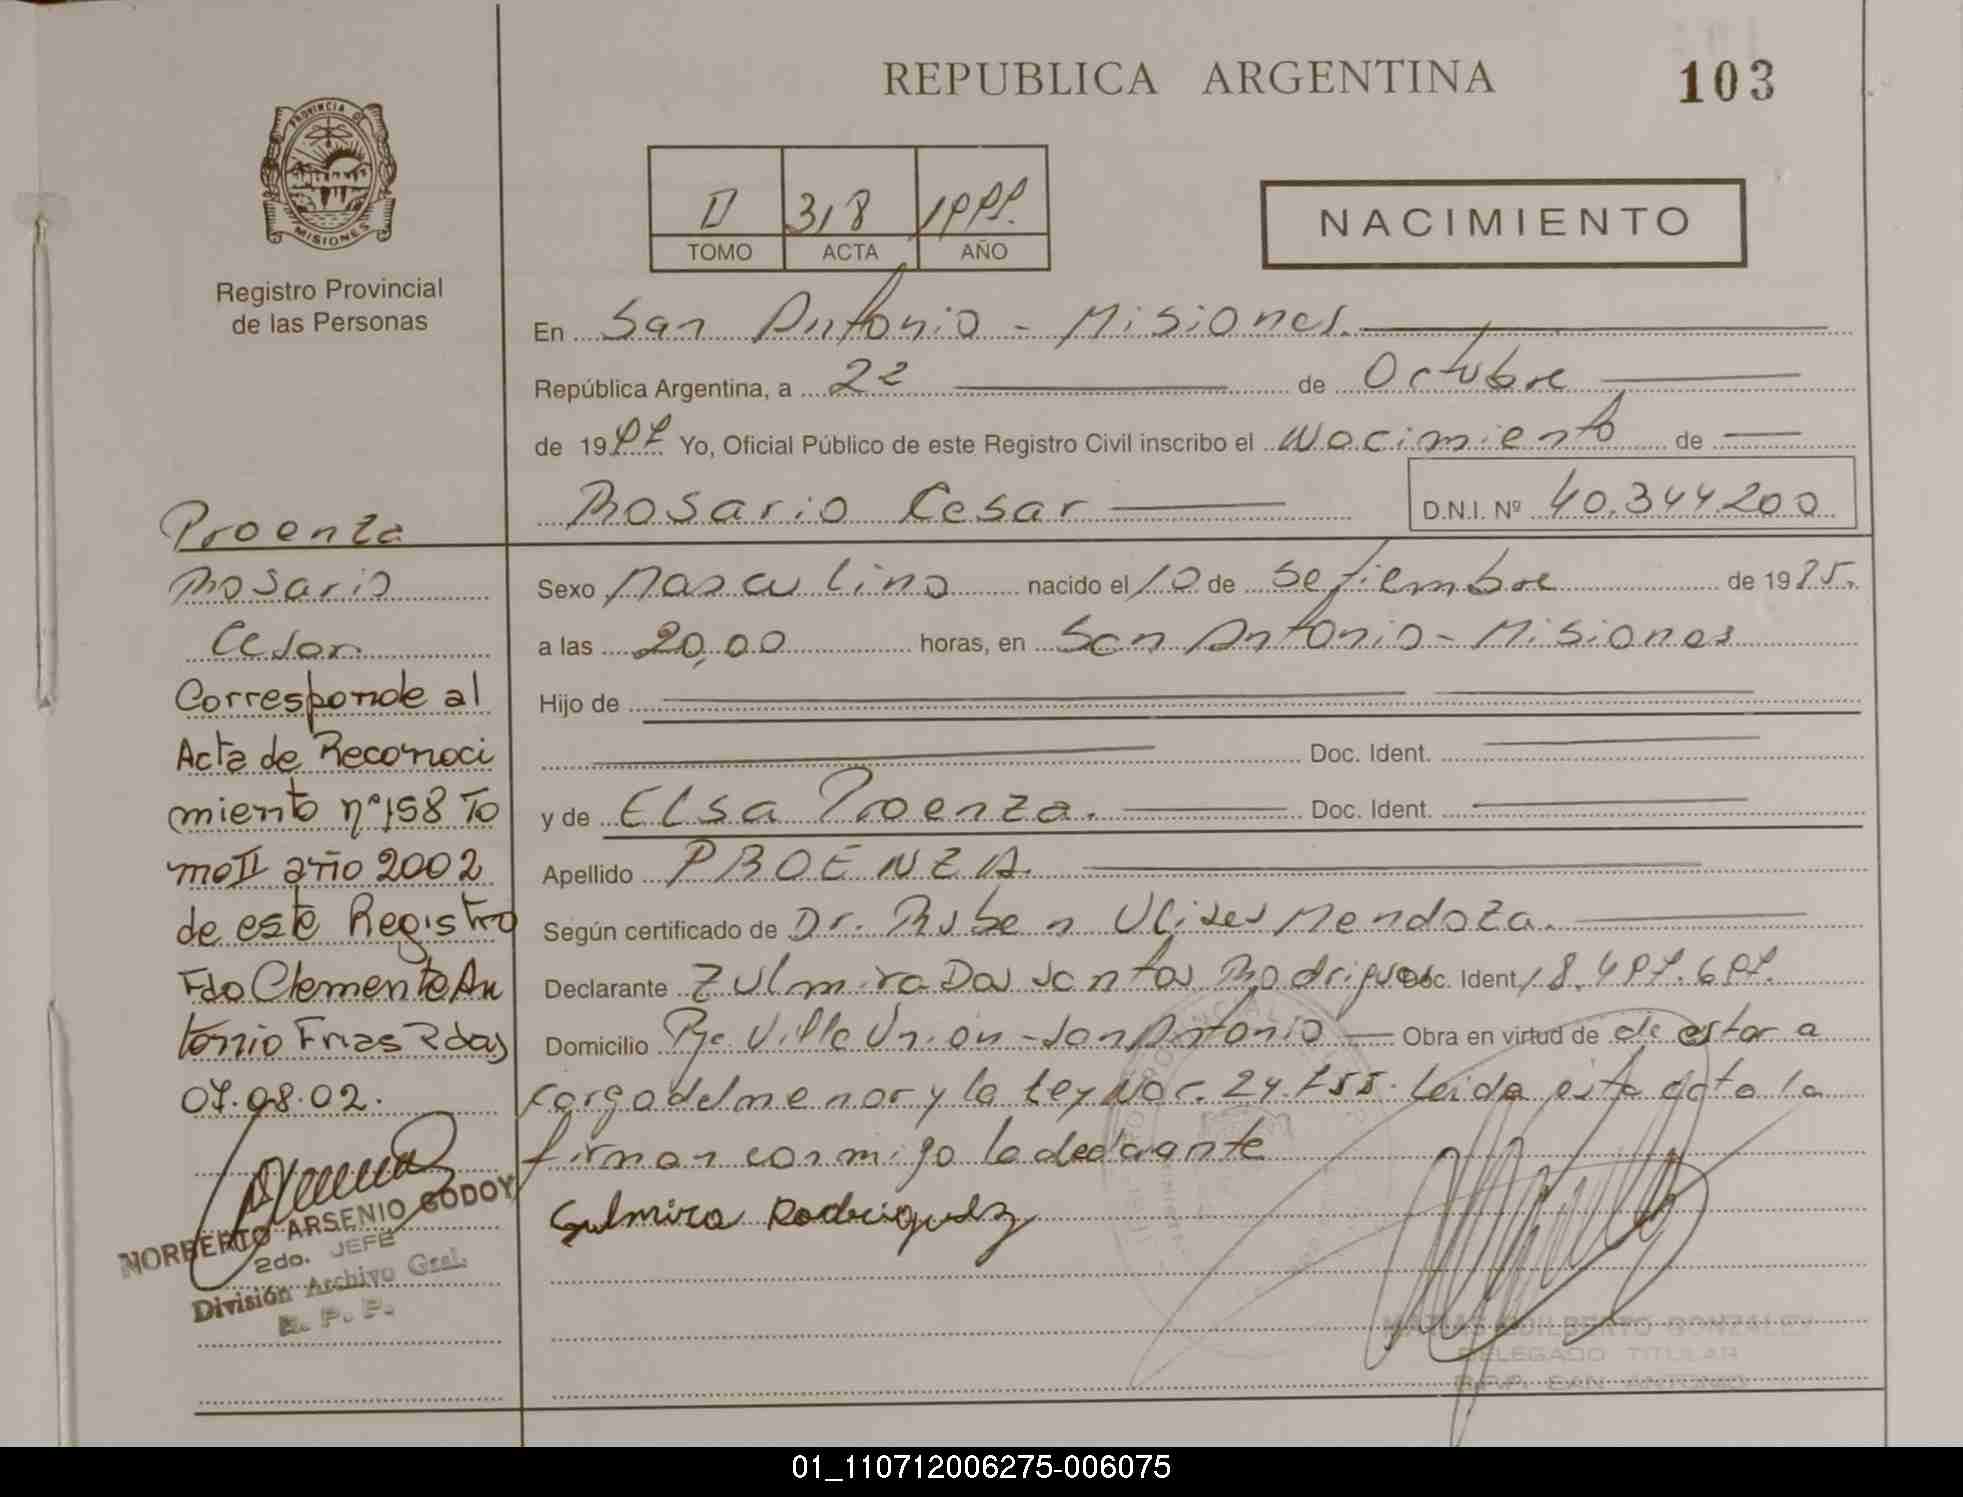 REPUBLICA ARGENTINA
103
PROVINCIA DE
MISIONES
Registro Provincial
de las Personas
II 318
TOMO ACTA AÑO
NACIMIENTO
En San Antonio - Misiones.
República Argentina, a 22 de Octubre
de 19 Yo, Oficial Público de este Registro Civil inscribo el Nacimiento de
Rosario Cesar
D.N.I. Nº 40.344.200
Sexo Masculino nacido el 10 de Setiembre de 19
a las 20,00 horas, en San Antonio - Misiones
Hijo de
Doc. Ident.
y de Elsa Proenza. Doc. Ident.
Apellido PROENZA.
Según certificado de Dr. Ruben Ulises Mendoza.
Declarante Zulmira Dos Santos Rodrigues Doc. Ident.
Domicilio Pje. Villa Unión - San Antonio Obra en virtud de de estar a
cargo del menor y la Ley Nac. 24.755. Leida esta acta la
firman conmigo la declarante
Sulmira Rodriguez
MATIAS ADILBERTO GONZALEZ
DELEGADO TITULAR
R.P.P. SAN ANTONIO
Proenza
Rosario
Cesar
Corresponde al
Acta de Reconoci
miento nº 158 To
mo II año 2002
de este Registro
Fdo Clemente An
tonio Frias 
07.08.02.
NORBERTO ARSENIO GODOY
2do. JEFE
División Archivo Gral.
R. P. P.
01_110712006275-006075